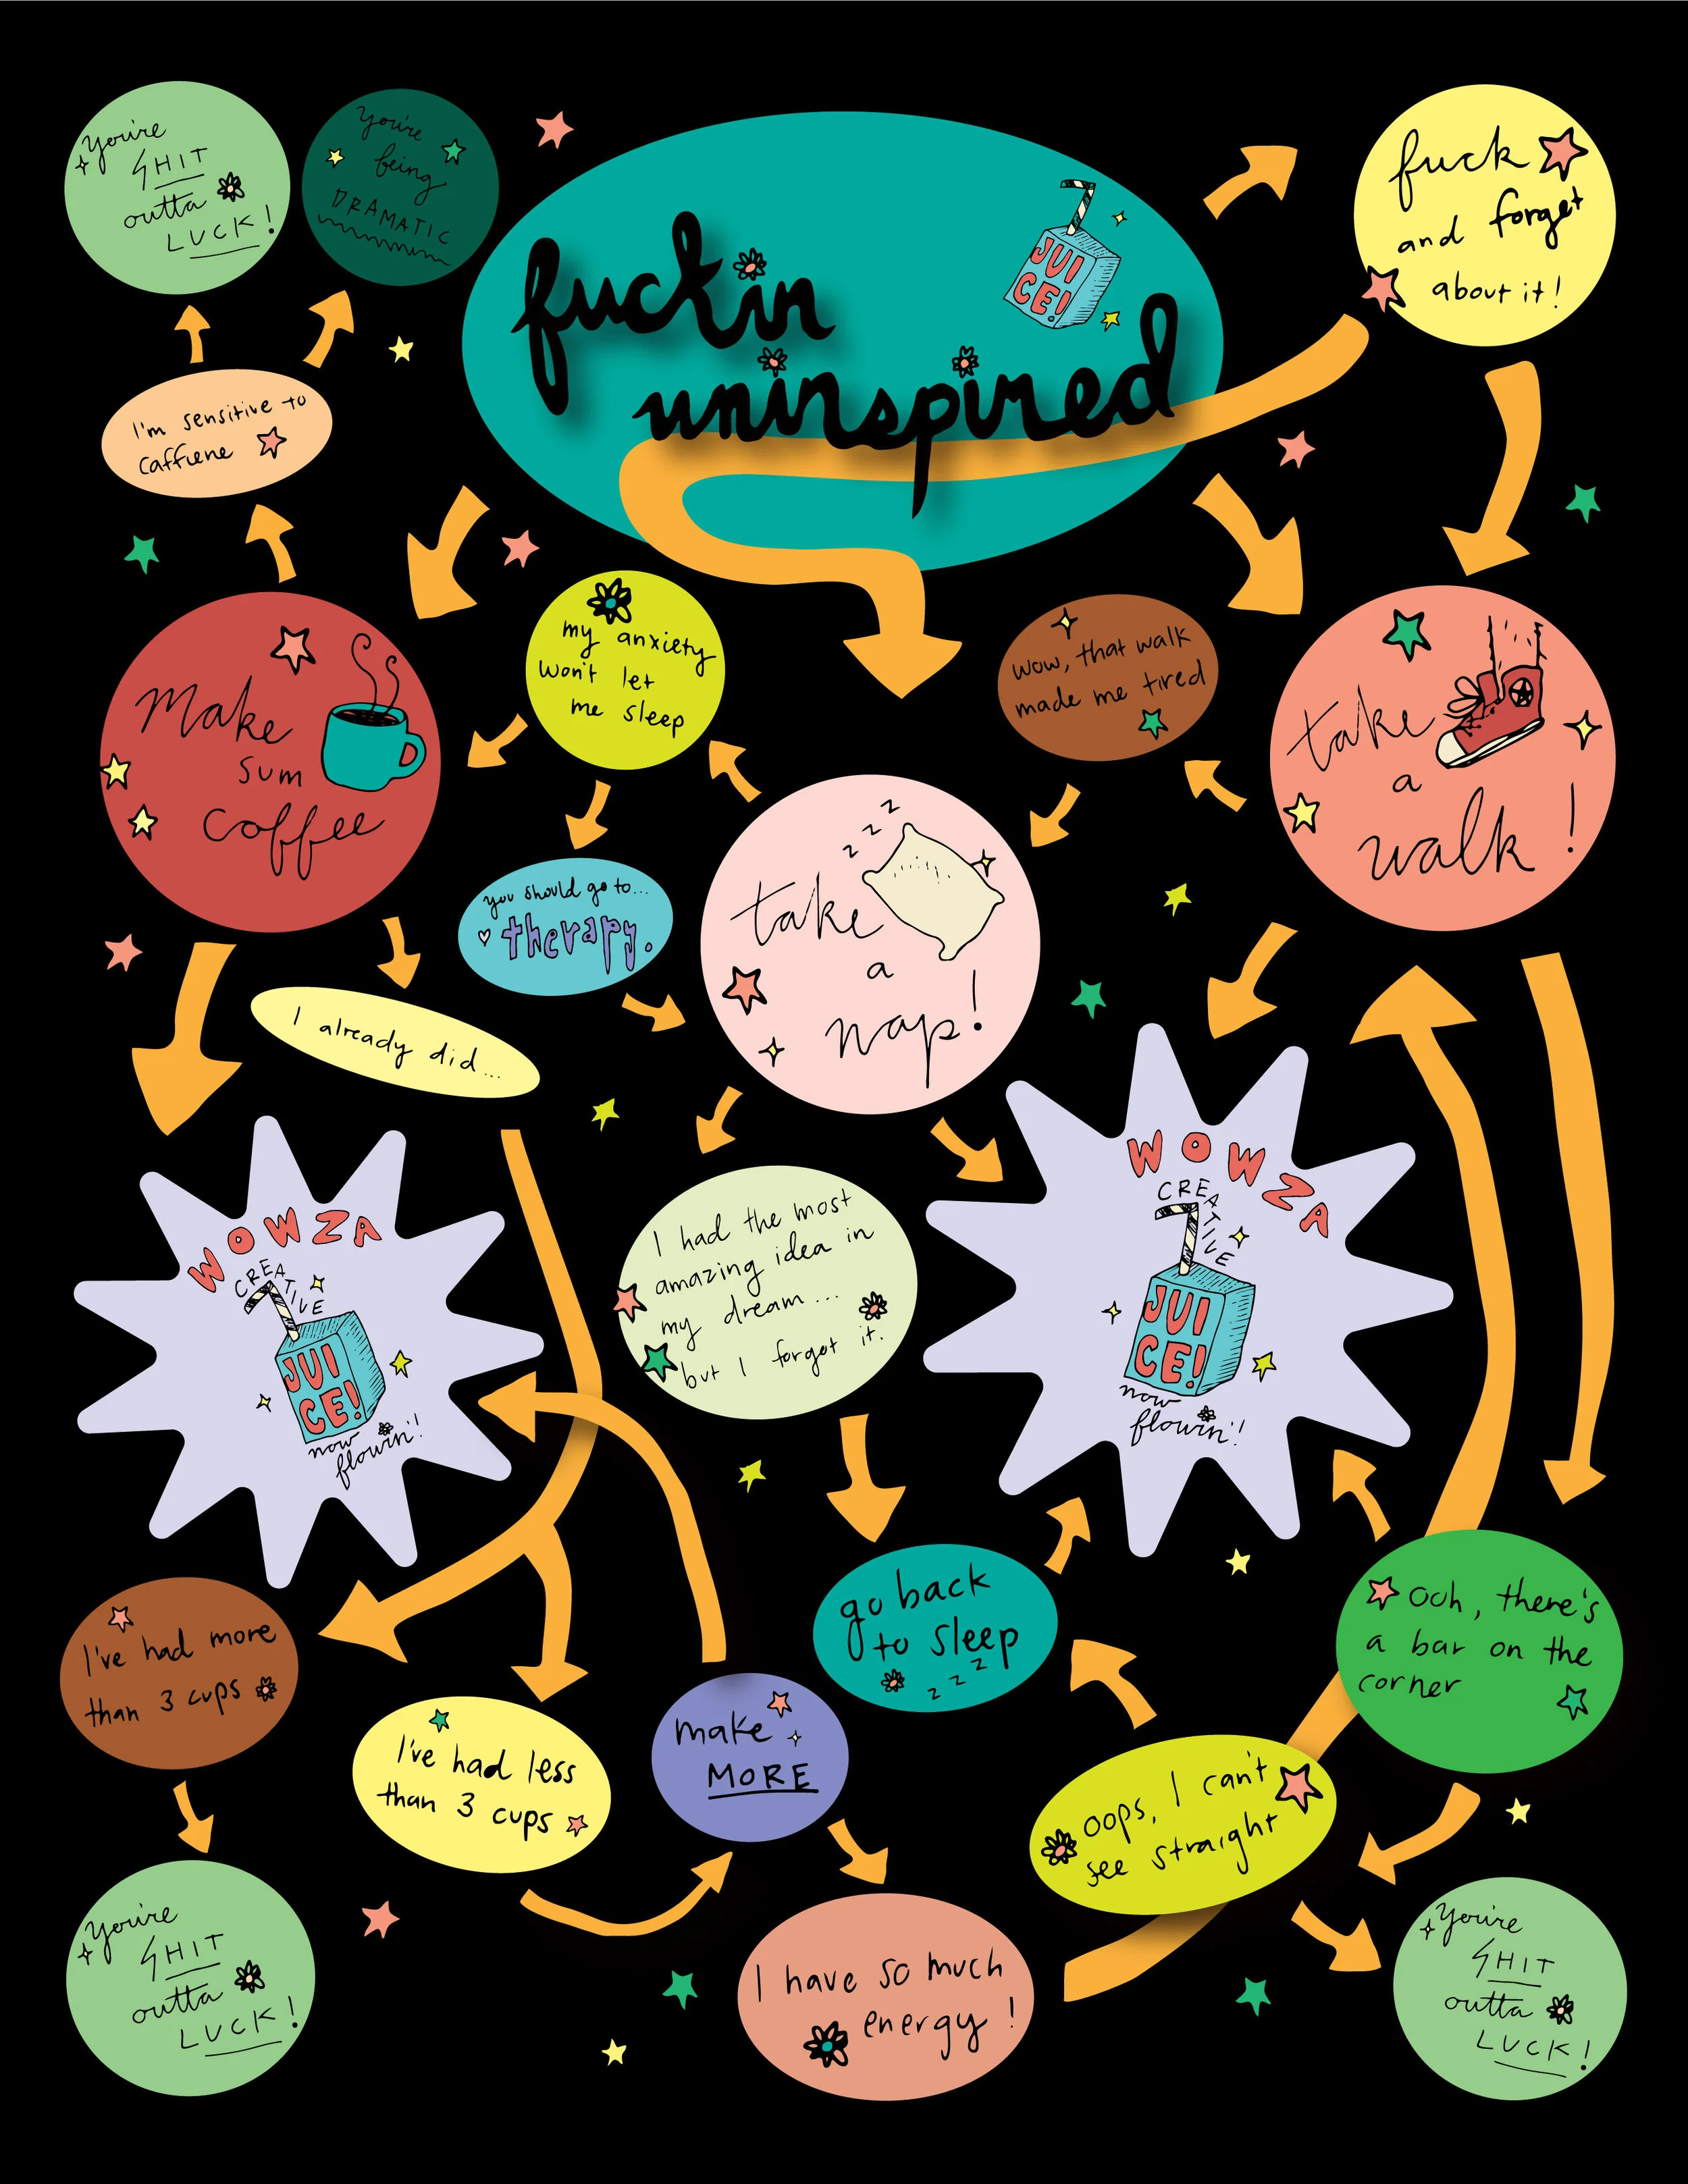 You're
SHIT
outta
LUCK!
You're
being
DRAMATIC
fuckin
uninspired
JUI
CE!
fuck
and forget
about it!
I'm sensitive to
caffiene
Make
sum
coffee
my anxiety
won't let
me sleep
wow, that walk
made me tired
take
a
walk!
you should go to...
therapy.
z z z
take
a
nap!
I already did...
WOWZA
CREATIVE
JUI
CE!
now
flowin'!
I had the most
amazing idea in
my dream...
but I forgot it.
WOWZA
CREATIVE
JUI
CE!
now
flowin'!
I've had more
than 3 cups
I've had less
than 3 cups
make
MORE
go back
to sleep
z z z
Ooh, there's
a bar on the
corner
oops, I can't
see straight
You're
SHIT
outta
LUCK!
I have so much
energy!
You're
SHIT
outta
LUCK!